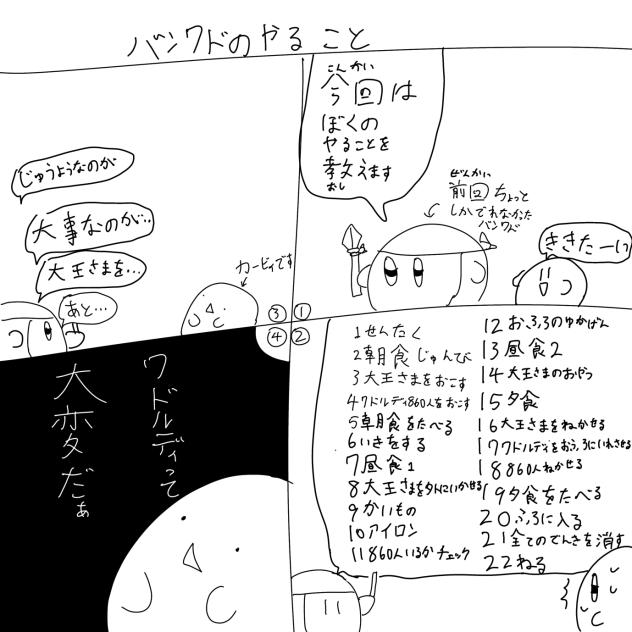 バンワドのやること
こんかい
今回は
ぼくの
やることを
教えます
おし
ぜんかい
前回ちょっと
しかでれなかった
バンワド
ききたーい
①
②
1せんたく
2朝食じゅんび
3大王さまをおこす
4ワドルディ860人をおこす
5朝食をたべる
6いきをする
7昼食1
8大王さまを外にいかせる
9かいもの
10アイロン
11 860人いるかチェック
12おふろのゆかばん
13昼食2
14大王さまのおやつ
15夕食
16大王さまをねかせる
17ワドルディをおふろにいれさせる
18 860人ねかせる
19夕食をたべる
20ふろに入る
21全てのでんきを消す
22ねる
③
じゅうようなのが
大事なのが…
大王さまを…
あと…
カービィです
④
ワドルディって
大変だぁ